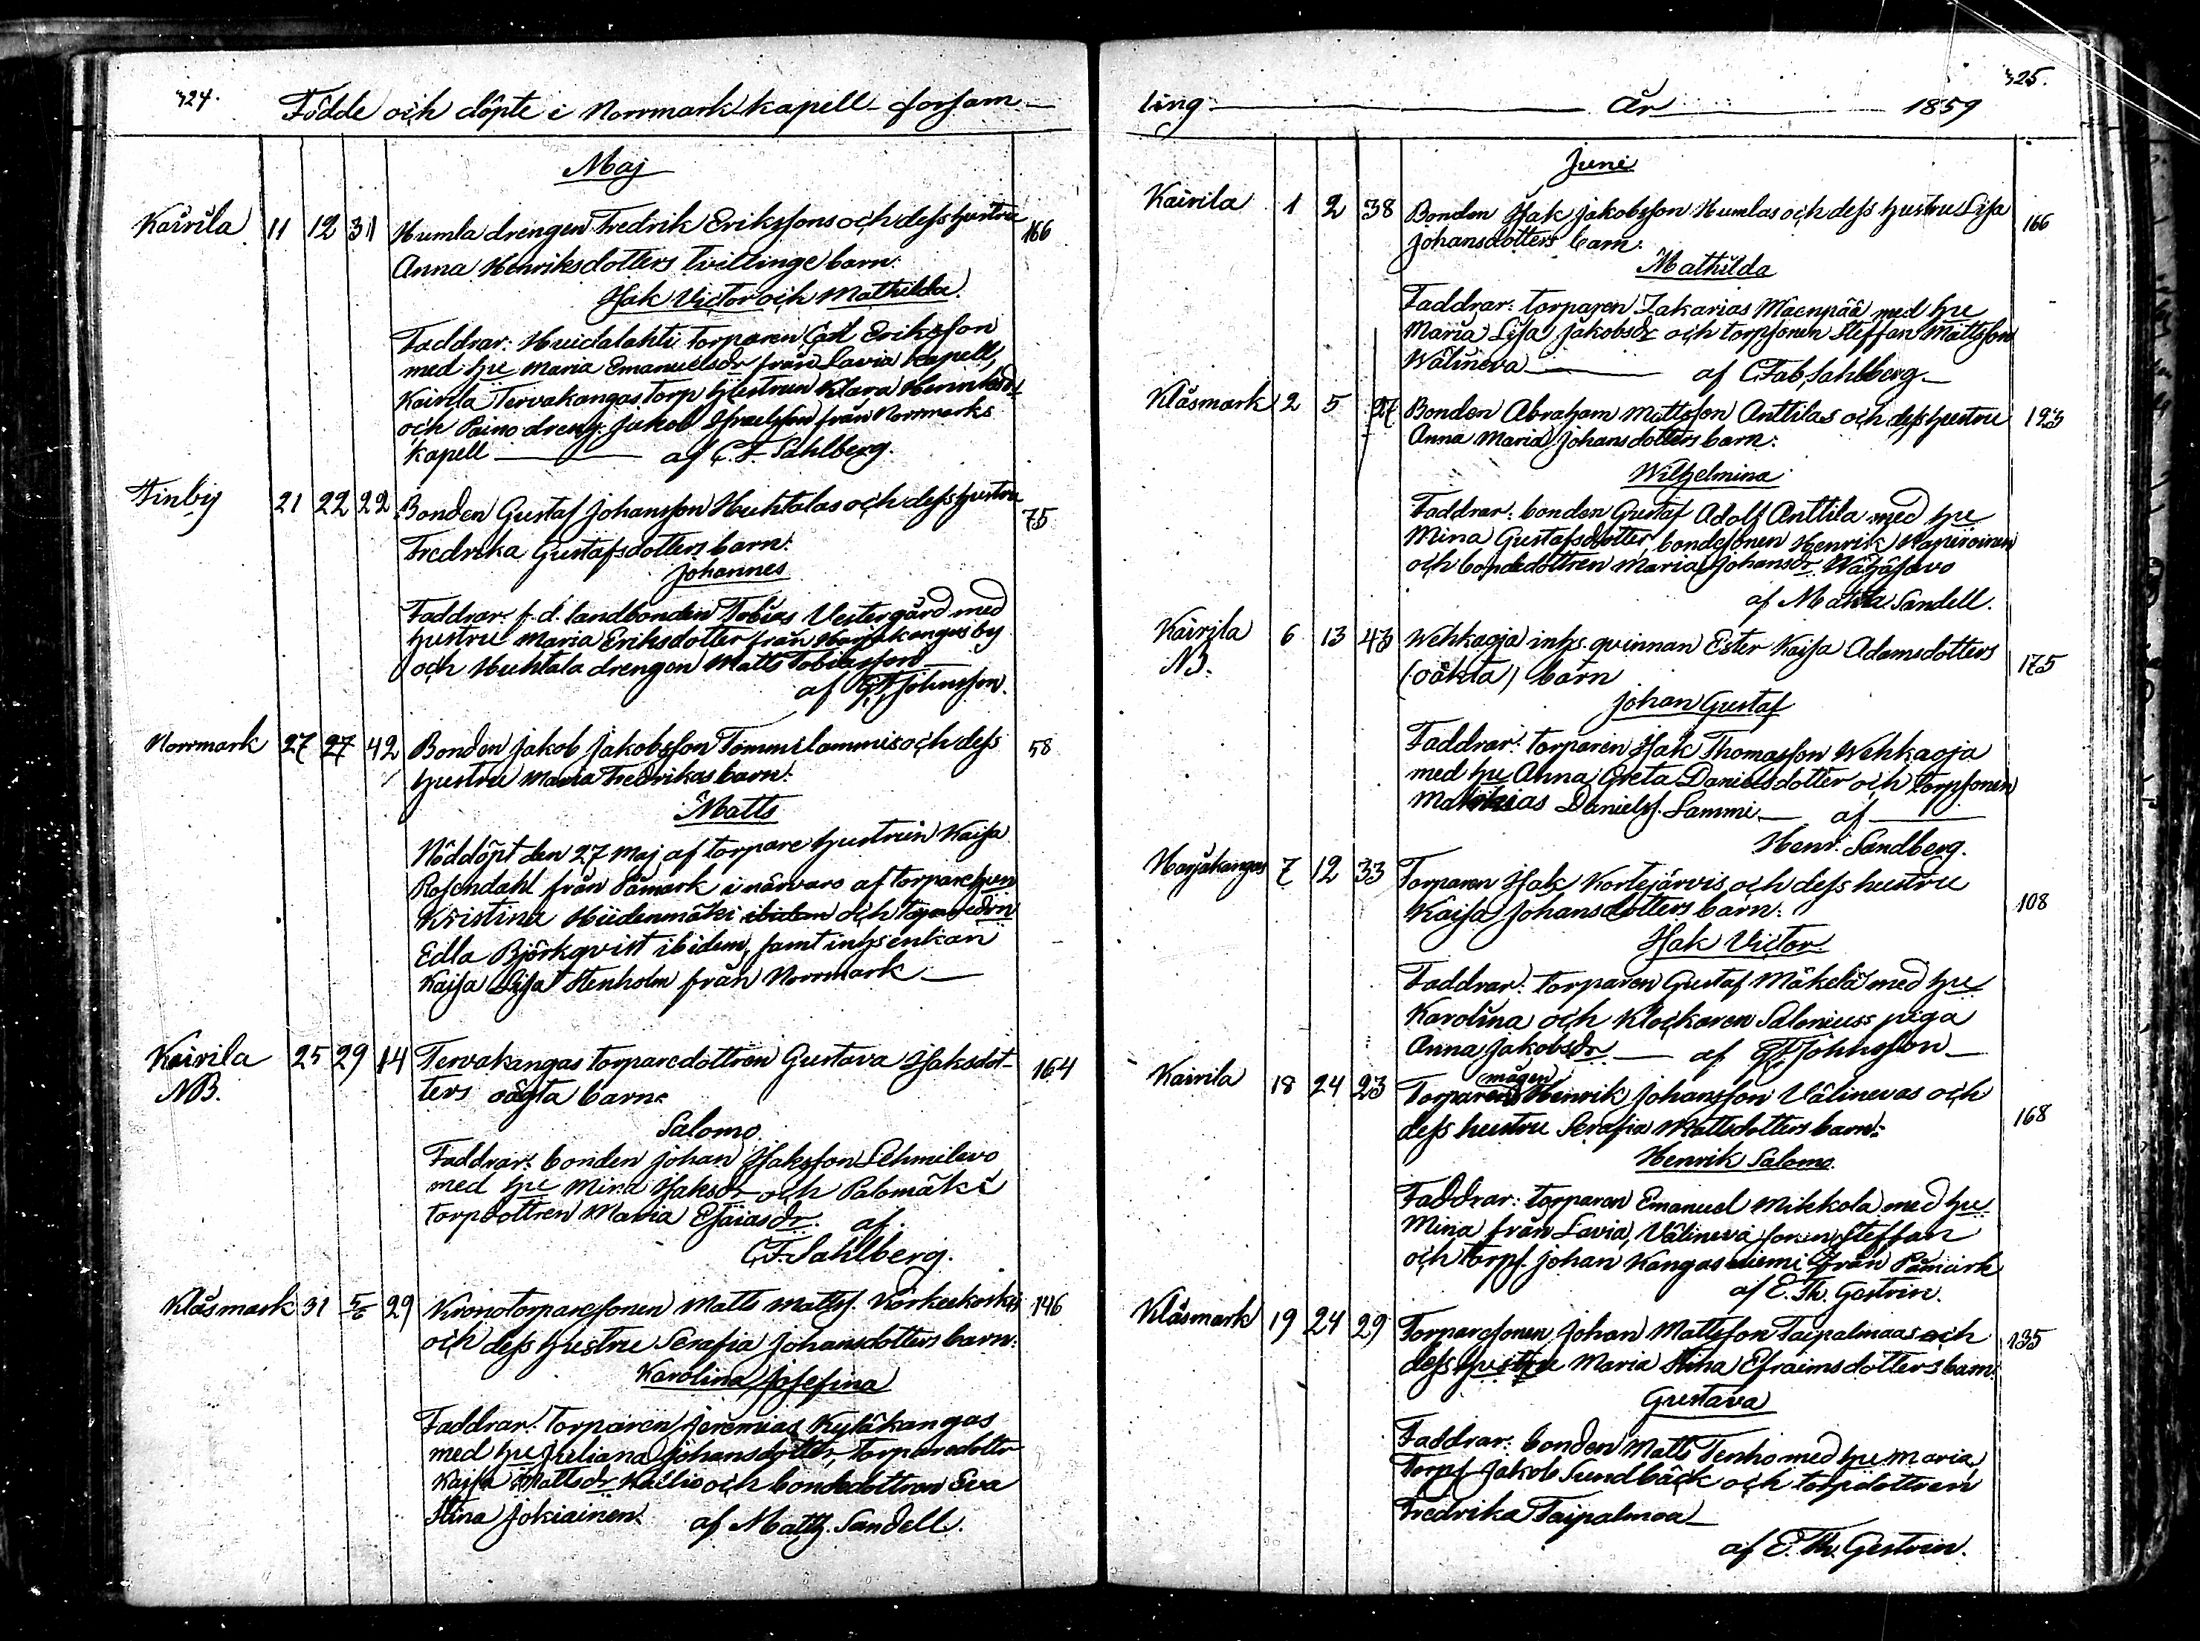 324.
Födde och döpte i Norrmark kapell-forsam-
Maj
Kairila 11 12 31 Humla drengen Fredrik Erikssons och dess hustru 166
Anna Henriksdotters tvillinge barn:
Isak Victor och Mathilda.
Faddrar: torparen Carl Eriksson
med hu Maria Emanuelsdr från Lavia kapell,
Kairila Tervakangas torp hustrun Klara Henriksdr
och Paino dreng: Jakob Israelsson från Norrmarks
kapell af C. F. Sahlberg.
Finby 21 22 22 Bonden Gustaf Johansson Huhtalas och dess hustru 75
Fredrika Gustafsdotters barn:
Johannes
Faddrar: f.d. landbonden Tobias Vestergård med
hustru Maria Eriksdotter från Harjakangas by
och Huhtala drengen Matts Tobiasson
af G. F. Johnsson.
Norrmark 27 27 42 Bonden Jakob Jakobsson Tommilammis och dess 58
hustru Maria Fredrikas barn:
Matts
Nöddöpt den 27 Maj af torpare hustrun Kaisa
Rosendahl från Påmark i närvaro af torpare hun
Kristina Hiidenmäki ibidem och
Edla Björkqvist ibidem, samt inhs enkan
Kaisa Lisa Stenholm från Norrmark
Kairila 25 29 14 Tervakangas torparedottren Gustava Isaksdot- 164
NB. ters oägta barn:
Salomo
Faddrar: bonden Johan Isaksson Lehmilevo
med hu Mina Isaksdr och Palomäki
torpdottren Maria Esaiasdr. af.
C. F. Sahlberg.
Klåsmark 31 5/6 29 Kronotorparesonen Matts Matts. 146
och dess hustru Serafia Johansdotters barn:
Karolina Josefina
Faddrar: torparen Jeremias Kyläkangas
med hu Juliana Johansdotter, torparedottr
Kaisa Mattsdr Kallio och bondedottren Eva
Stina Jokiainen: af Matth. Sandell.
325.
ling År 1859
Juni
Kairila 1 2 38 Bonden Isak Jakobsson Humlas och dess hustru Lisa 166
Johansdotters barn:
Mathilda
Faddrar: torparen Zakarias Maenpää med hu
Maria Lisa Jakobsdr och torpsonen Steffan Mattsson
Wälineva af C. Fab. Sahlberg
Klåsmark 2 5 27 Bonden Abraham Mattsson Anttilas och dess hustru 123
Anna Maria Johansdotters barn:
Wilhelmina
Faddrar: bonden Gustaf Adolf Anttila med hu
Mina Gustafsdotter, bondesonen Henrik
och bondedottren Maria Johansdr Wähäsavo
af Matth. Sandell.
Kairila 6 13 43 Wehkaoja inhs. qvinnan Ester Kaisa Adamsdotters 175
NB. (oäkta) barn
Johan Gustaf
Faddrar: torparen Isak Thomasson Wehkaoja
med hu Anna Greta Danielsdotter och torpsonen
Mathias Daniels. Lammi af
Henr. Sandberg.
Harjakangas 7 12 33 Torparen Isak Kortejärvis och dess hustru 108
Kaisa Johansdotters barn:
Isak Victor
Faddrar: torparen Gustaf Mäkelä med hu
Karolina och Klockaren Saloniuss piga
Anna Jakobsdr af G. F. Johnsson
Kairila 18 24 23 Torpare mågen Henrik Johansson Välinevas och 168
dess hustru Serafia Mattsdotters barn:
Henrik Salomo.
Faddrar: torparen Emanuel Mikkola med hu
Mina från Lavia, Välineva sonen Steffan
och torps. Johan Kangasniemi från Påmark
af E. Th. Gestrin.
Klåsmark 19 24 29 Torparesonen Johan Mattsson Taipalmaas och 135
dess hustru Maria Stina Efraimsdotters barn:
Gustava
Faddrar: bonden Matts Tenho med hu Maria,
torps Jakob Sundbäck och torpdottren
Fredrika Taipalmaa
af E. Th. Gestrin.